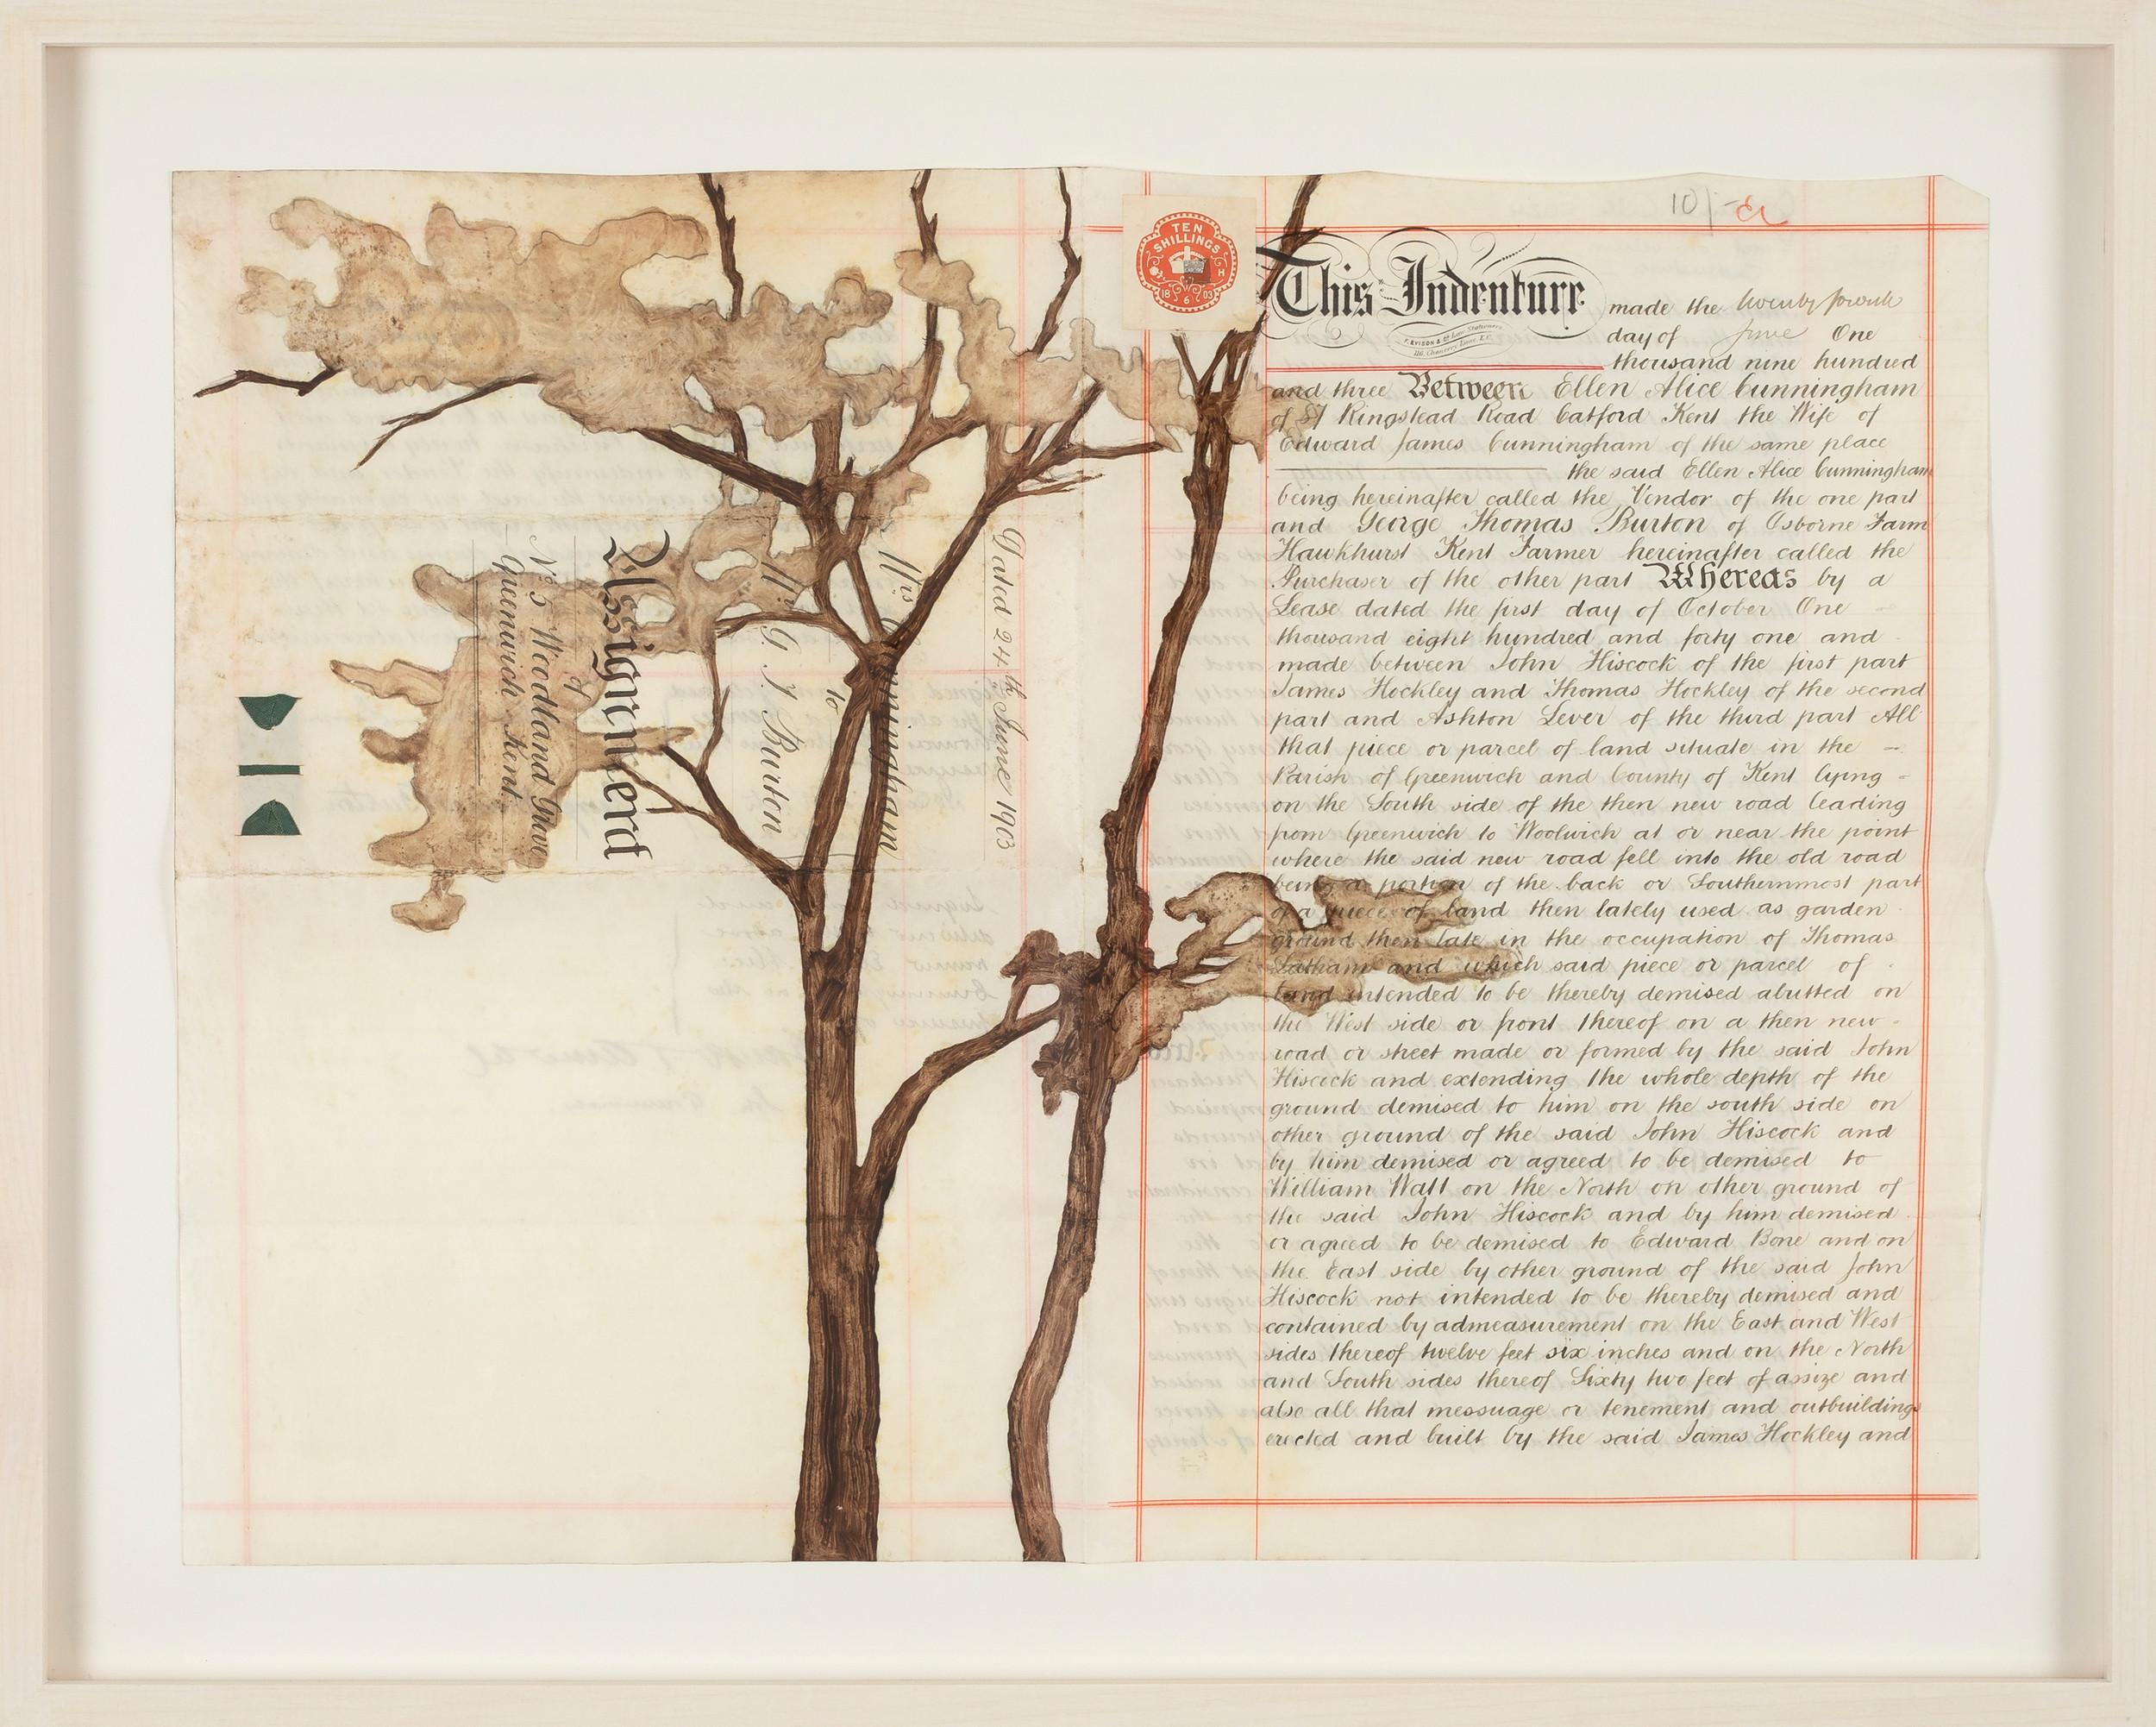 Dated 24th June 1903
Mrs Cunningham
to
Mr G. T. Burton
Assignment
of
No 5 Woodland Grove
Greenwich Kent.
TEN
SHILLINGS
18 6 03
10/-
This Indenture made the twenty fourth
day of June One
thousand nine hundred
and three Between Ellen Alice Cunningham
of Kingstead Road Catford Kent the Wife of
Edward James Cunningham of the same place
the said Ellen Alice Cunningham
being hereinafter called the Vendor of the one part
and George Thomas Burton of Osborne Farm
Hawkhurst Kent Farmer hereinafter called the
Purchaser of the other part Whereas by a
Lease dated the first day of October One
thousand eight hundred and forty one and
made between John Hiscock of the first part
James Hockley and Thomas Hockley of the second
part and Ashton Lever of the third part All
that piece or parcel of land situate in the
Parish of Greenwich and County of Kent lying
on the South side of the then new road leading
from Greenwich to Woolwich at or near the point
where the said new road fell into the old road
being a portion of the back or Southernmost part
of a piece of land then lately used as garden
ground then late in the occupation of Thomas
Latham and which said piece or parcel of
land intended to be thereby demised abutted on
the West side or front thereof on a then new
road or street made or formed by the said John
Hiscock and extending the whole depth of the
ground demised to him on the south side on
other ground of the said John Hiscock and
by him demised or agreed to be demised to
William Wall on the North on other ground of
the said John Hiscock and by him demised
or agreed to be demised to Edward Bone and on
the East side by other ground of the said John
Hiscock not intended to be thereby demised and
contained by admeasurement on the East and West
sides thereof twelve feet six inches and on the North
and South sides thereof Sixty two feet of assize and
also all that messuage or tenement and outbuildings
erected and built by the said James Hockley and